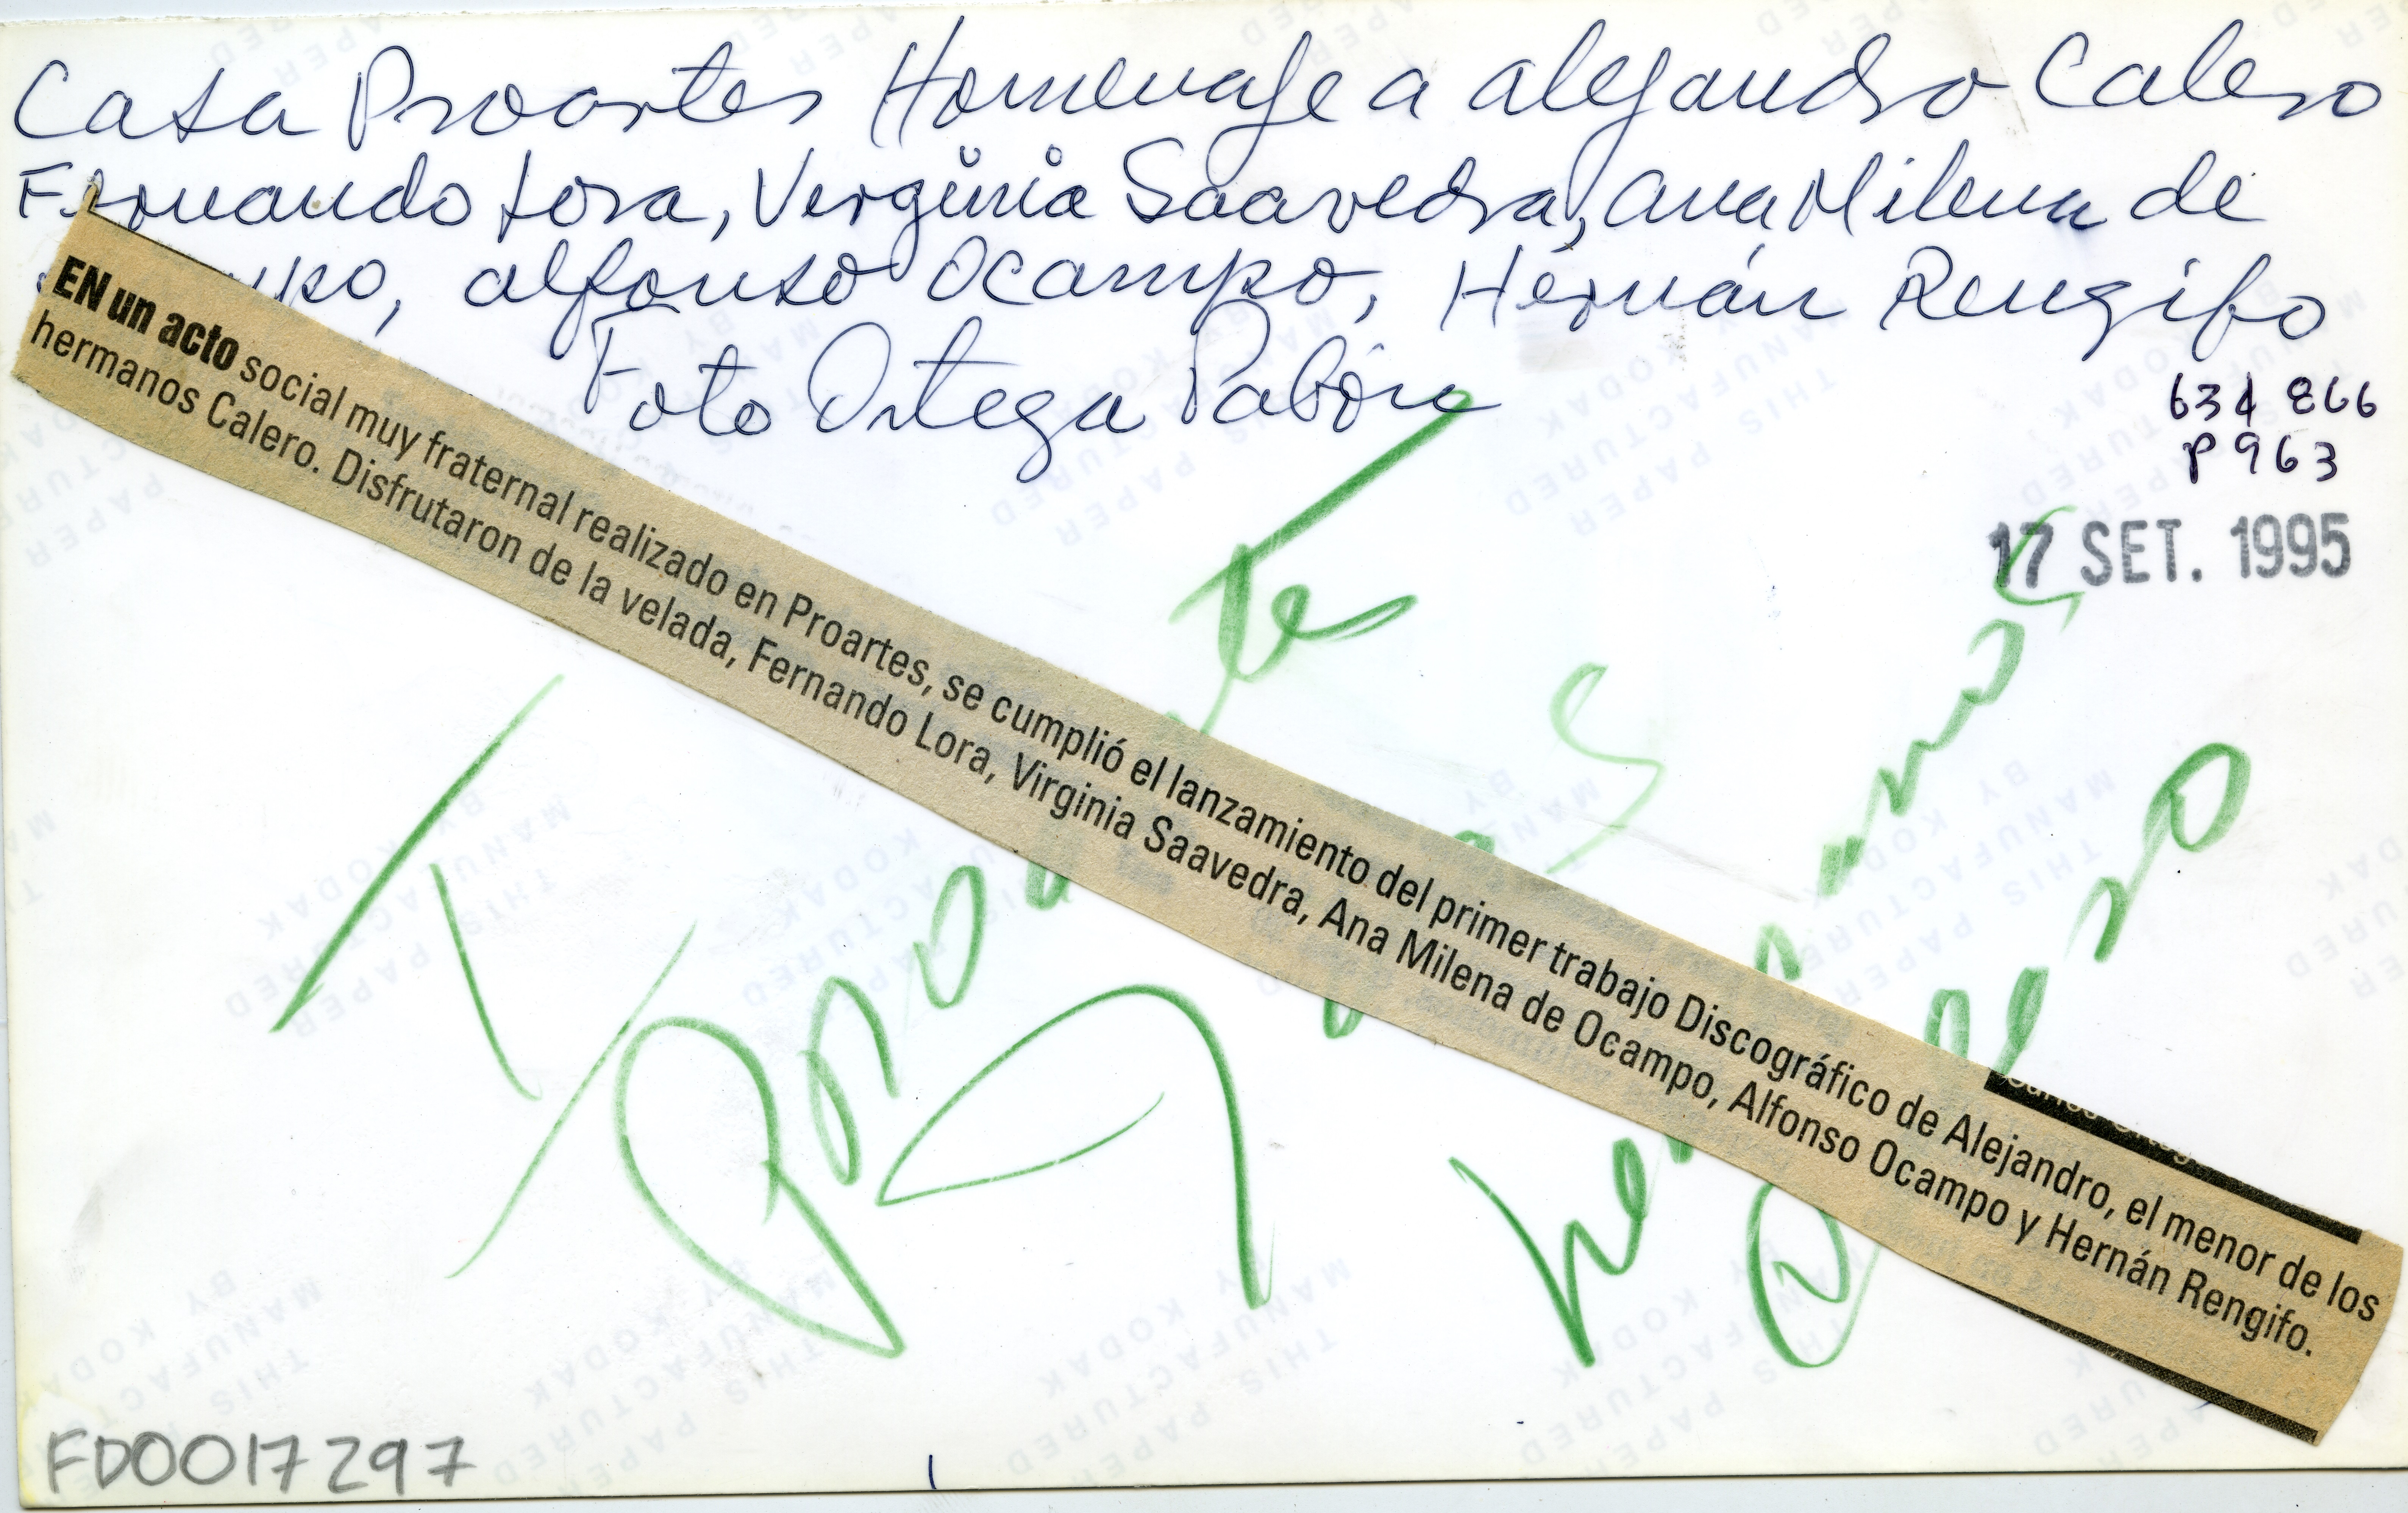 Casa Proartes Homenaje a alejandro Calero
Fernando Lora, Verginia Saavedra, ana Milena de
alfonso Ocampo, Hérnán Rengifo
Foto Ortega Pabón
634 866
P 963
17 SET. 1995
EN un acto social muy fraternal realizado en Proartes, se cumplió el lanzamiento del primer trabajo Discográfico de Alejandro, el menor de los
hermanos Calero. Disfrutaron de la velada, Fernando Lora, Virginia Saavedra, Ana Milena de Ocampo, Alfonso Ocampo y Hernán Rengifo.
FD0017297
THIS PAPER
MANUFACTURED
BY KODAK